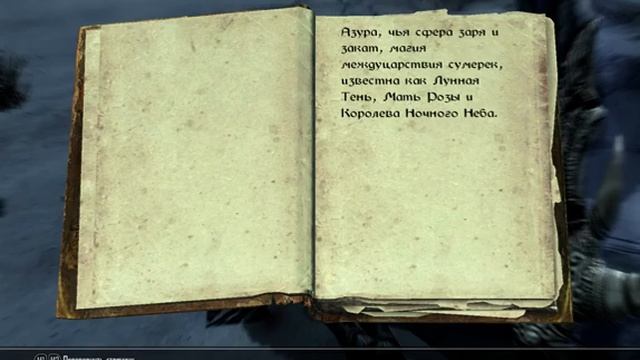 Азура, чья сфера заря и
закат, магия
междуцарствия сумерек,
известна как Лунная
Тень, Мать Розы и
Королева Ночного Неба.